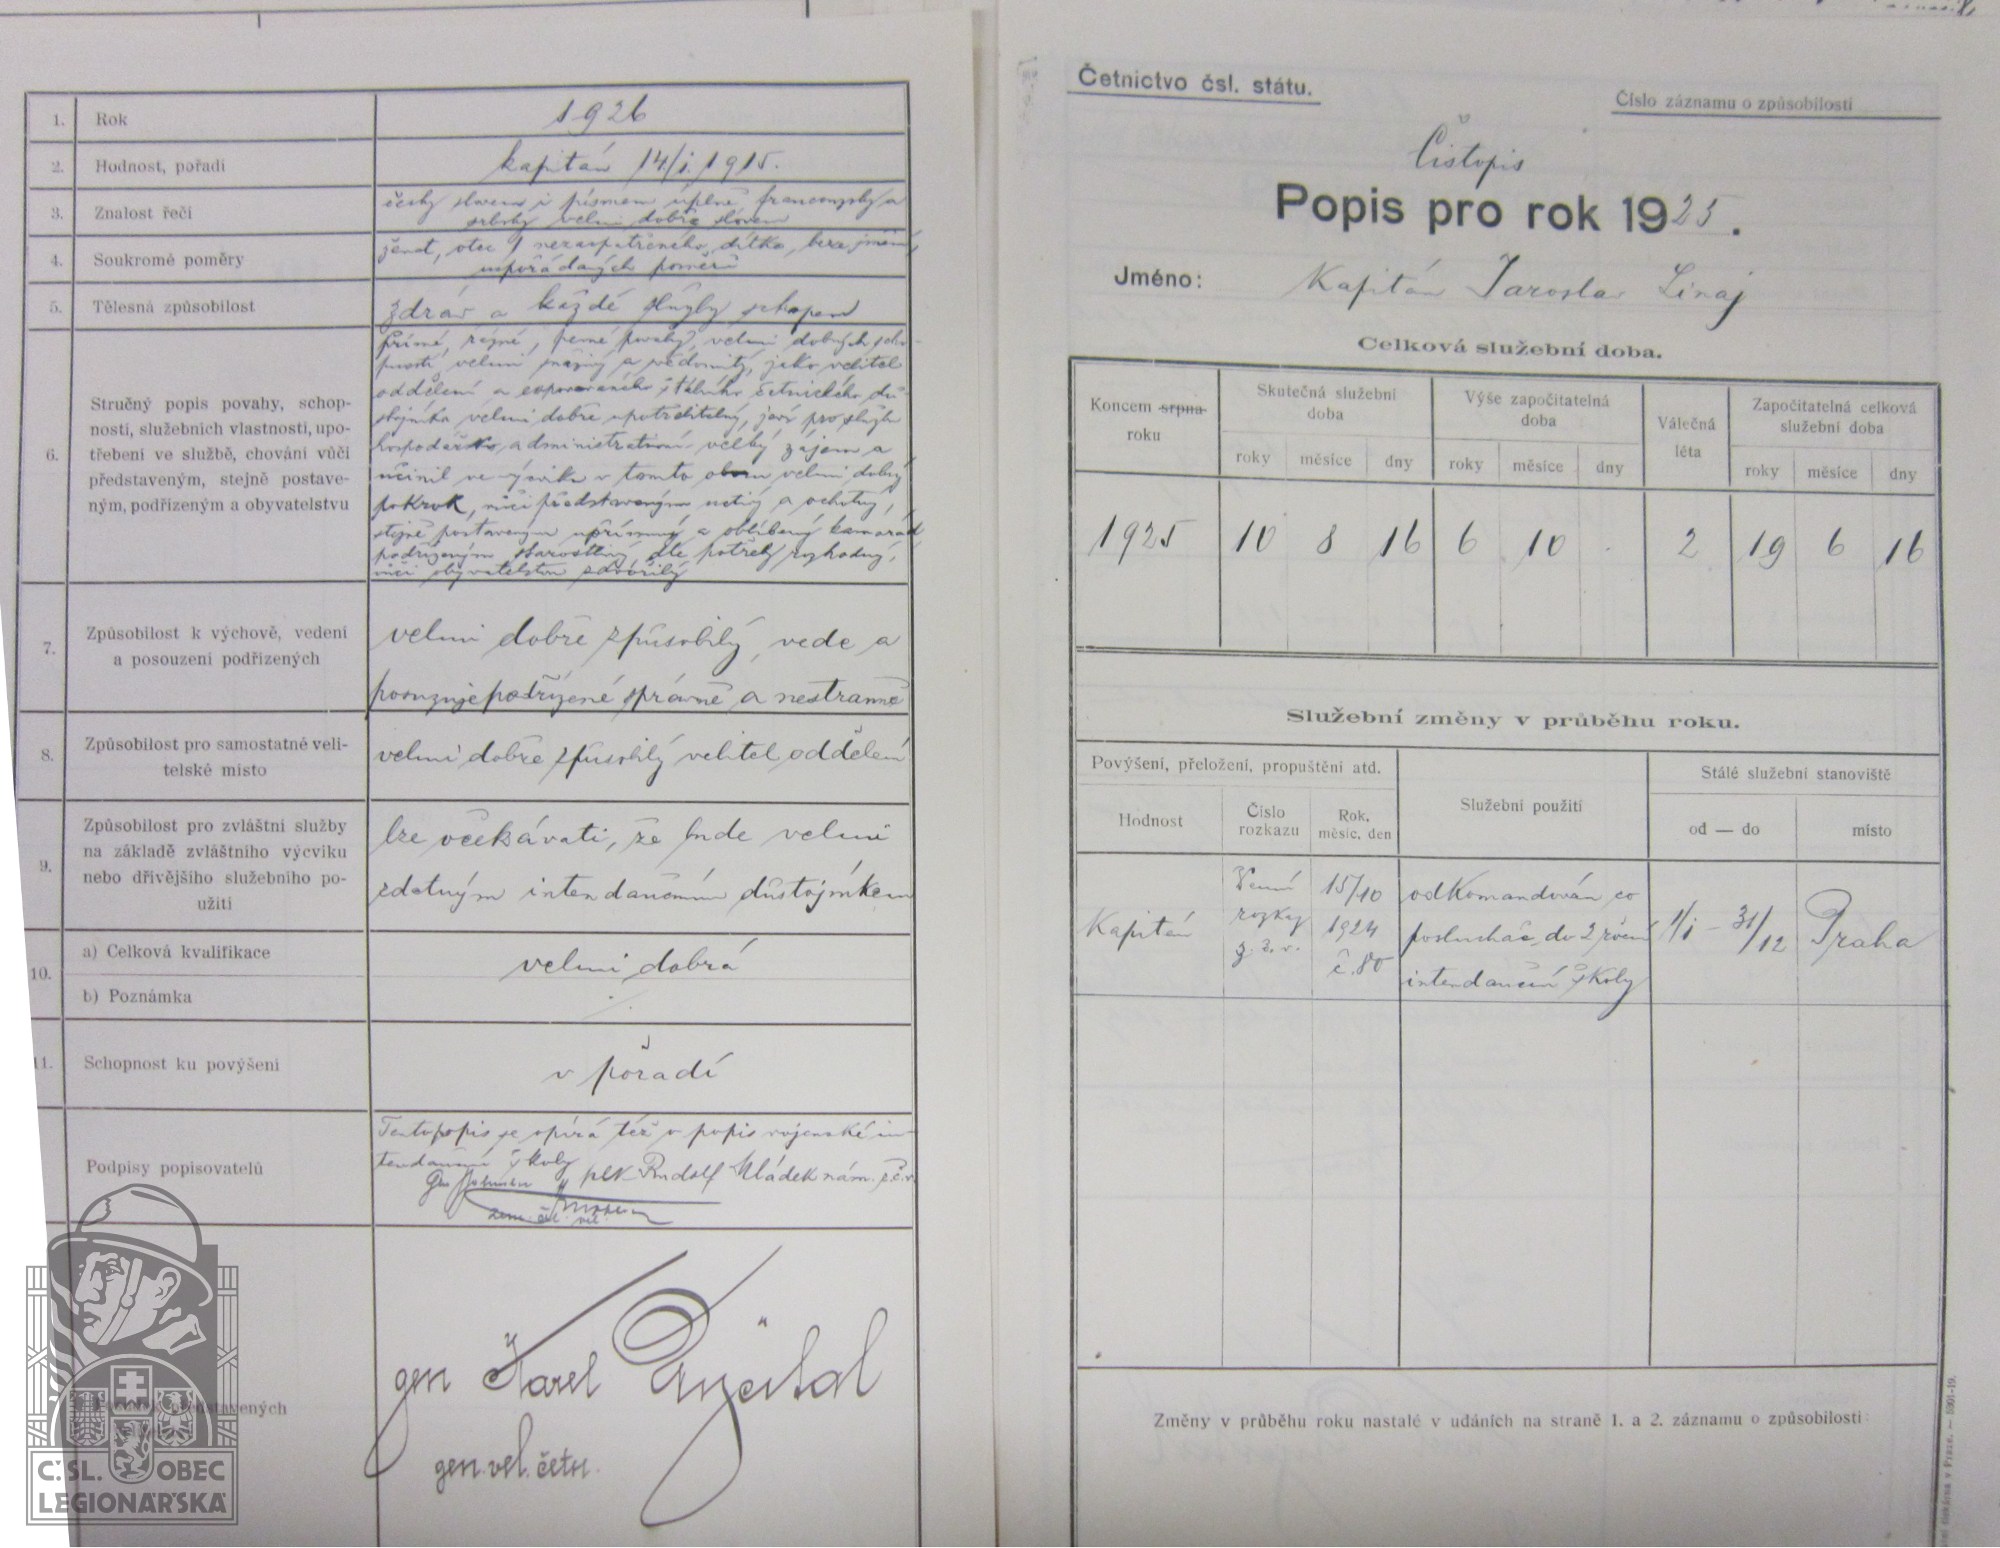 1. Rok 1926
2. Hodnost, pořadí kapitán 14/I. 1915.
3. Znalost řečí česky slovem i písmem úplně, francouzsky a
srbsky velmi dobře slovem
4. Soukromé poměry ženat, otec 1 nezaopatřeného dítka, beze jmění,
uspořádaných poměrů
5. Tělesná způsobilost zdráv a každé služby schopen
6. Stručný popis povahy, schop-
ností, služebních vlastností, upo-
třebení ve službě, chování vůči
představeným, stejně postave-
ným, podřízeným a obyvatelstvu
přímé, rázné, pevné povahy, velmi dobrých scho-
pností, velmi snaživý a svědomitý, jako velitel
oddělení a exponovaného štábního četnického dů-
stojníka velmi dobře upotřebitelný, jeví pro službu
hospodářsko administrativní velký zájem a
učinil ve výcviku v tomto oboru velmi dobrý
pokrok, vůči představeným uctivý a ochotný,
stejně postaveným upřímný a oblíbený kamarád
podřízeným starostlivý, dle potřeby rozhodný,
vůči obyvatelstvu zdvořilý
7. Způsobilost k výchově, vedení
a posouzení podřízených
velmi dobře způsobilý, vede a
posuzuje podřízené správně a nestranně
8. Způsobilost pro samostatné veli-
telské místo
velmi dobře způsobilý velitel oddělení
9. Způsobilost pro zvláštní služby
na základě zvláštního výcviku
nebo dřívějšího služebního po-
užití
lze očekávati, že bude velmi
zdatným intendančním důstojníkem
10. a) Celková kvalifikace velmi dobrá
b) Poznámka
11. Schopnost ku povýšení v pořadí
Podpisy popisovatelů
Tento popis se opírá též o popis vojenské in-
tendanční školy
plk Rudolf Mládek nám. z.č.v.
zem. čet. vel.
gen Karel
gen. vel. četn.
Č.SL. OBEC
LEGIONÁŘSKÁ
Četnictvo čsl. státu.
Číslo záznamu o způsobilosti
Čistopis
Popis pro rok 1925.
Jméno: Kapitán Jaroslav Linaj
Celková služební doba.
Koncem srpna
roku
Skutečná služební
doba
Výše započitatelná
doba
Válečná
léta
Započitatelná celková
služební doba
roky měsíce dny roky měsíce dny roky měsíce dny
1925 10 8 16 6 10 . 2 19 6 16
Služební změny v průběhu roku.
Povýšení, přeložení, propuštění atd.
Služební použití
Stálé služební stanoviště
Hodnost
Číslo
rozkazu
Rok,
měsíc, den
od — do
místo
Kapitán
Denní
rozkaz
z.v.
15/10
1924
č. 80
odkomandován co
posluchač do 2 roční
intendanční školy
1/I - 31/12
Praha
Změny v průběhu roku nastalé v udáních na straně 1. a 2. záznamu o způsobilosti: